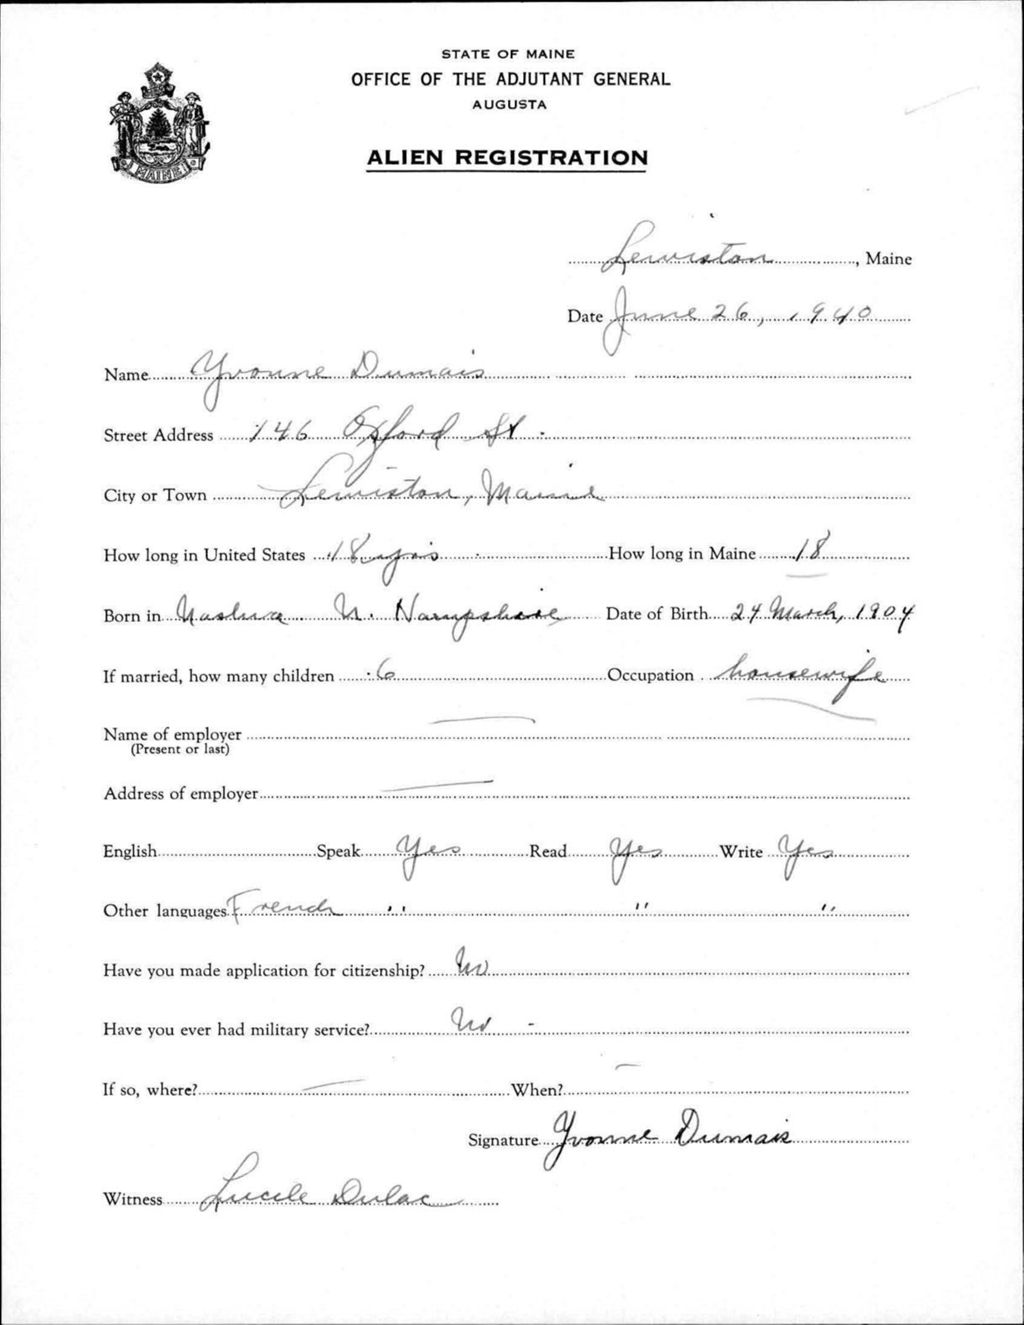 STATE OF MAINE
OFFICE OF THE ADJUTANT GENERAL
AUGUSTA
MAINE
ALIEN REGISTRATION
Lewiston, Maine
Date June 26, 1940
Name Yvonne Dumais
Street Address 146 Oxford St.
City or Town Lewiston, Maine
How long in United States 18 yrs How long in Maine 18
Born in Nashua N. Hampshire Date of Birth 24 March, 1904
If married, how many children 6 Occupation housewife
Name of employer —
(Present or last)
Address of employer —
English Speak Yes Read Yes Write Yes
Other languages French " " "
Have you made application for citizenship? No
Have you ever had military service? No -
If so, where? — When? —
Signature Yvonne Dumais
Witness Lucile Dulac